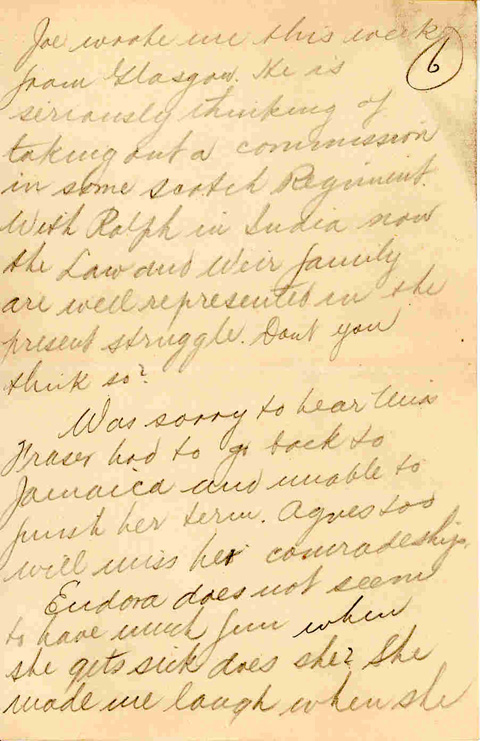 6
Joe wrote me this week
from Glasgow. He is
seriously thinking of
taking out a commission
in some Scotch Regiment.
With Ralph in India now
the Law and Weir family
are well represented in the
present struggle. Dont you
think so?
Was sorry to hear Miss
Fraser had to go back to
Jamaica and unable to
finish her term. Agnes too
will miss her comradeship.
Eudora does not seem
to have much fun when
she gets sick does she? She
made me laugh when she